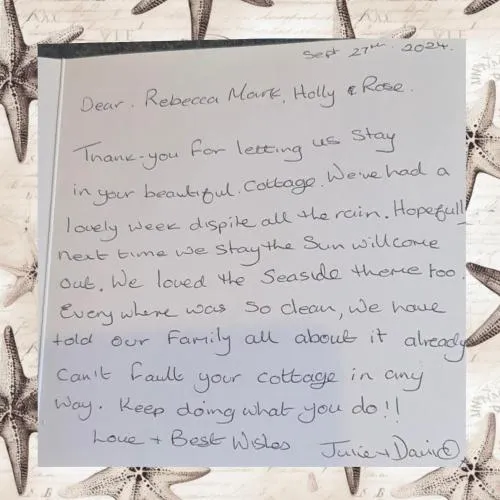 Sept 27th. 2024.
Dear. Rebecca Mark, Holly & Rose.
Thank-you for letting us stay
in your beautiful. Cottage. We've had a
lovely week dispite all the rain. Hopefull
next time we stay the Sun will come
out. We loved the Seaside theme too.
Everywhere was so clean, we have
told our family all about it already
Can't fault your cottage in any
way. Keep doing what you do!!
Love + Best Wishes
Julie + David